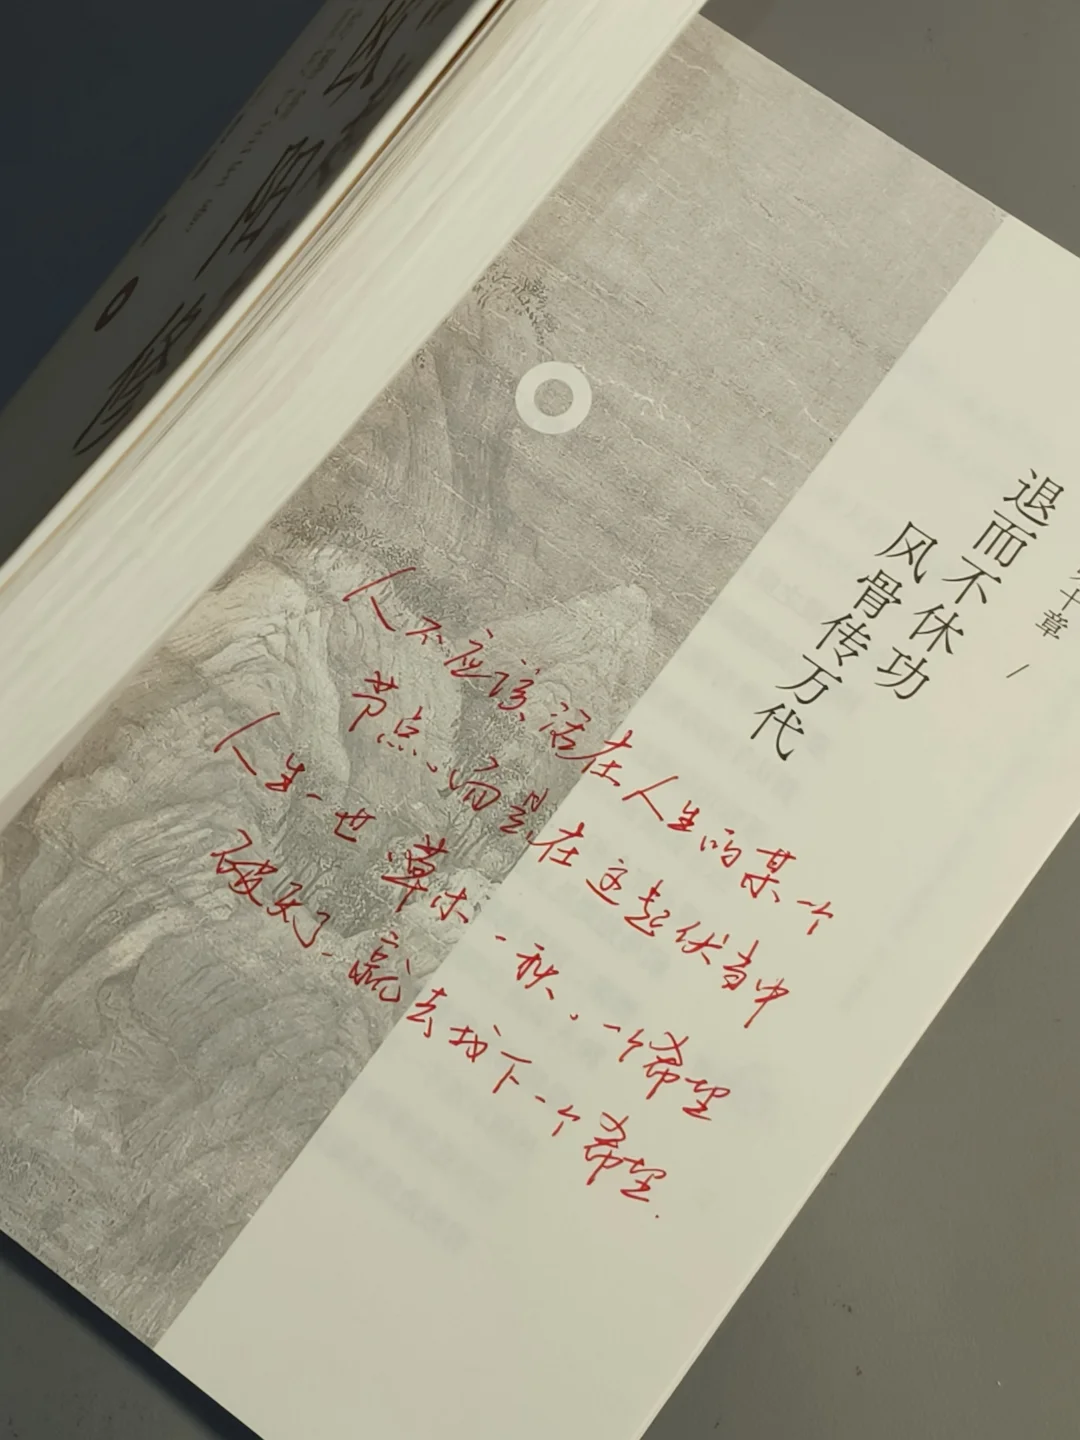 十章
退而不休功
风骨传万代
人不应该活在人生的某个
节点、而是在这起伏当中
人生一世、草木一秋。一个希望
破灭了、就去找下一个希望.